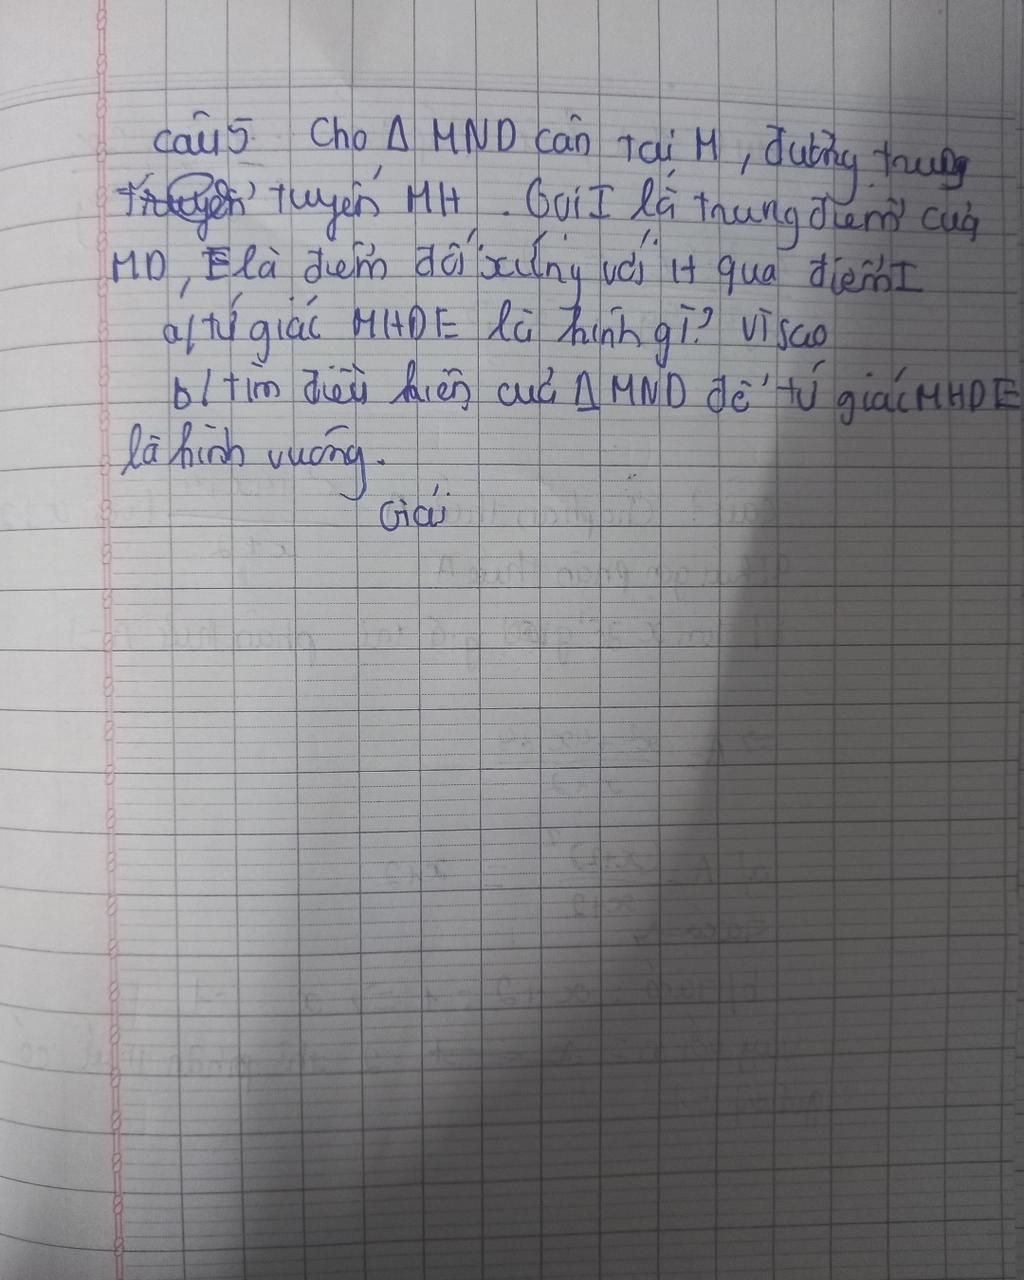 Câu 5 Cho Δ MND cân tại M, đường trung
tuyến MH. Gọi I là trung điểm của
MD, E là điểm đối xứng với H qua điểm I
a/ tứ giác MHDE là hình gì? Vì sao
b/ tìm điều kiện của Δ MND để tứ giác MHDE
là hình vuông.
Giải